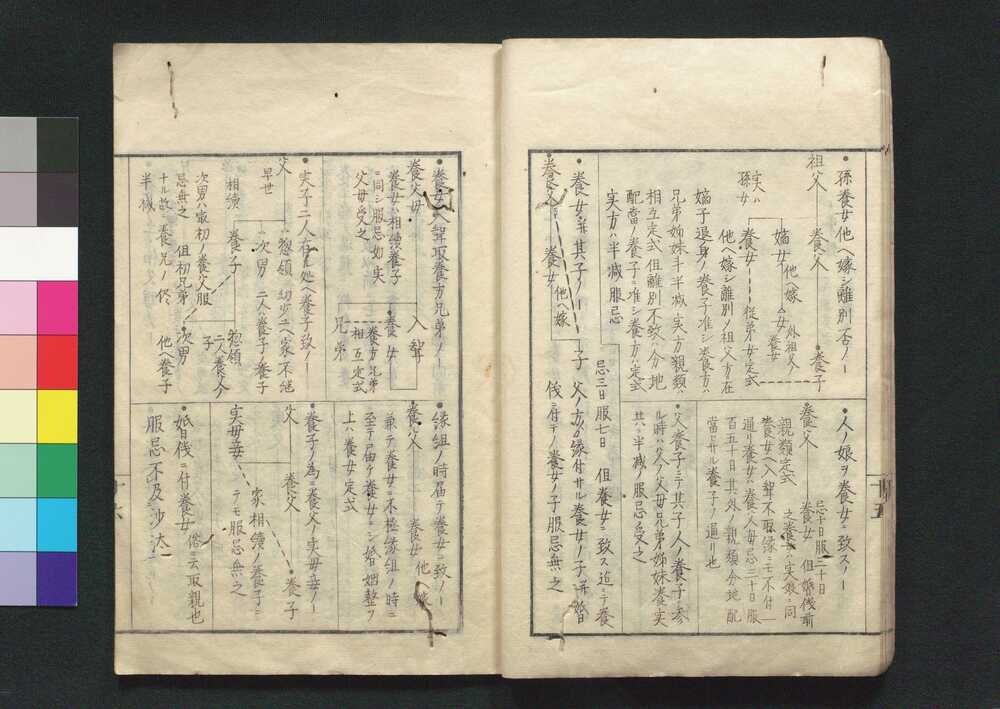 ・孫養女他ヘ嫁シ離別不否ノー
祖父
養父
嫡女
他ヘ嫁
女
外祖父
養女
養子
実ハ
孫女
養女
従弟女ノ定式
他ヘ嫁シ離別ノ祖父方在
嫡子退身ノ養子准シ養方ハ
兄弟姉妹半半減実方親類ハ
相互定式但離別不致ハ分地
配當ノ養子ニ准シ養方ハ定式
実方ハ半減服忌
・人ノ娘ヲ養女ニ致スノー
養父
養女
忌十日服三十日
但婚儀前
之養女ハ実娘ニ同
親類定式
養女ヘ入聟不取縁ニモ不付一
通リ養女ハ養人毎忌三十日服
百五十日其外ノ親類分地配
當トサル養子ノ通リ也
・父養子ニテ其子人ノ養子ニ参
ル時ハ父ノ父母兄弟姉妹養実
共ニ半減ノ服忌受之
・養女并其子ノー
養父
養女
他ヘ嫁
子
父方ゟ縁付サル養女ノ子并婚
忌三日服七日
但養女ニ致ス迄ニテ養
儀ニ付テノ養女ノ子服忌無之
十五
・養女ヘ聟取養方兄弟ノー同
養父母
養女ハ相續養子
ニ同シ服忌如実
父母受之
入聟
養女
兄弟
養方兄弟
相互定式
・実子二人在之処ヘ養子致ノー
父
早世
惣領
幼少ニハ家不継
次男
二人ハ養子ノ養子
相續
養子
惣領
二人養父ノ
子
次男
他ヘ養子
次男ハ家初ノ養父服
忌無之
但初兄弟ノ
十ル故養兄ノ侭
半減
・縁組ノ時届テ養女ニ致ノー
養父
養女
他ヘ嫁
兼テ養女ニ不極縁組ノ時ニ
至テ届ケ養女ニシ婚姻整フ
上ハ養女定式
・養子ノ為ニ養父ノ実母妾ノー
父
養父
養子
実母妾
家相續ノ養子ニ
テモ服忌無之
・婚儀ニ付養女
俗ニ云取親也
服忌不及沙汰
十六